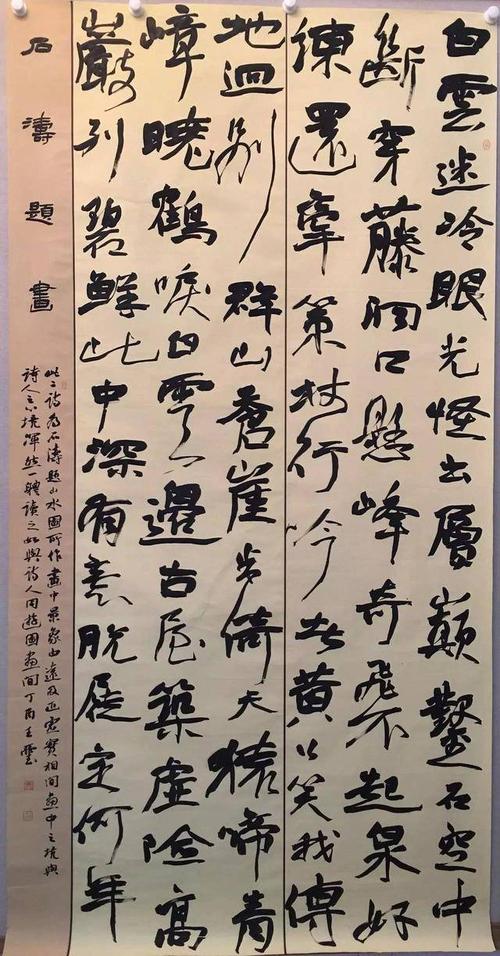 白雲迷冷眼光怪出層巔鑿石空中
斷穿藤洞口懸峰奇飛不起泉好
練還牽策杖行吟去黄公笑我傳
地迥別群山蒼崖步倚天猿啼青
嶂曉鶴唳白雲邊古屋築虛險高
巖列碧鮮此中深有意脫屣定何年
石濤題畫
此二詩為石濤題山水圖所作畫中景象由遠及近虛實相間畫中之境與
詩人之心境渾然一體讀之如與詩人同遊圖畫間丁酉王